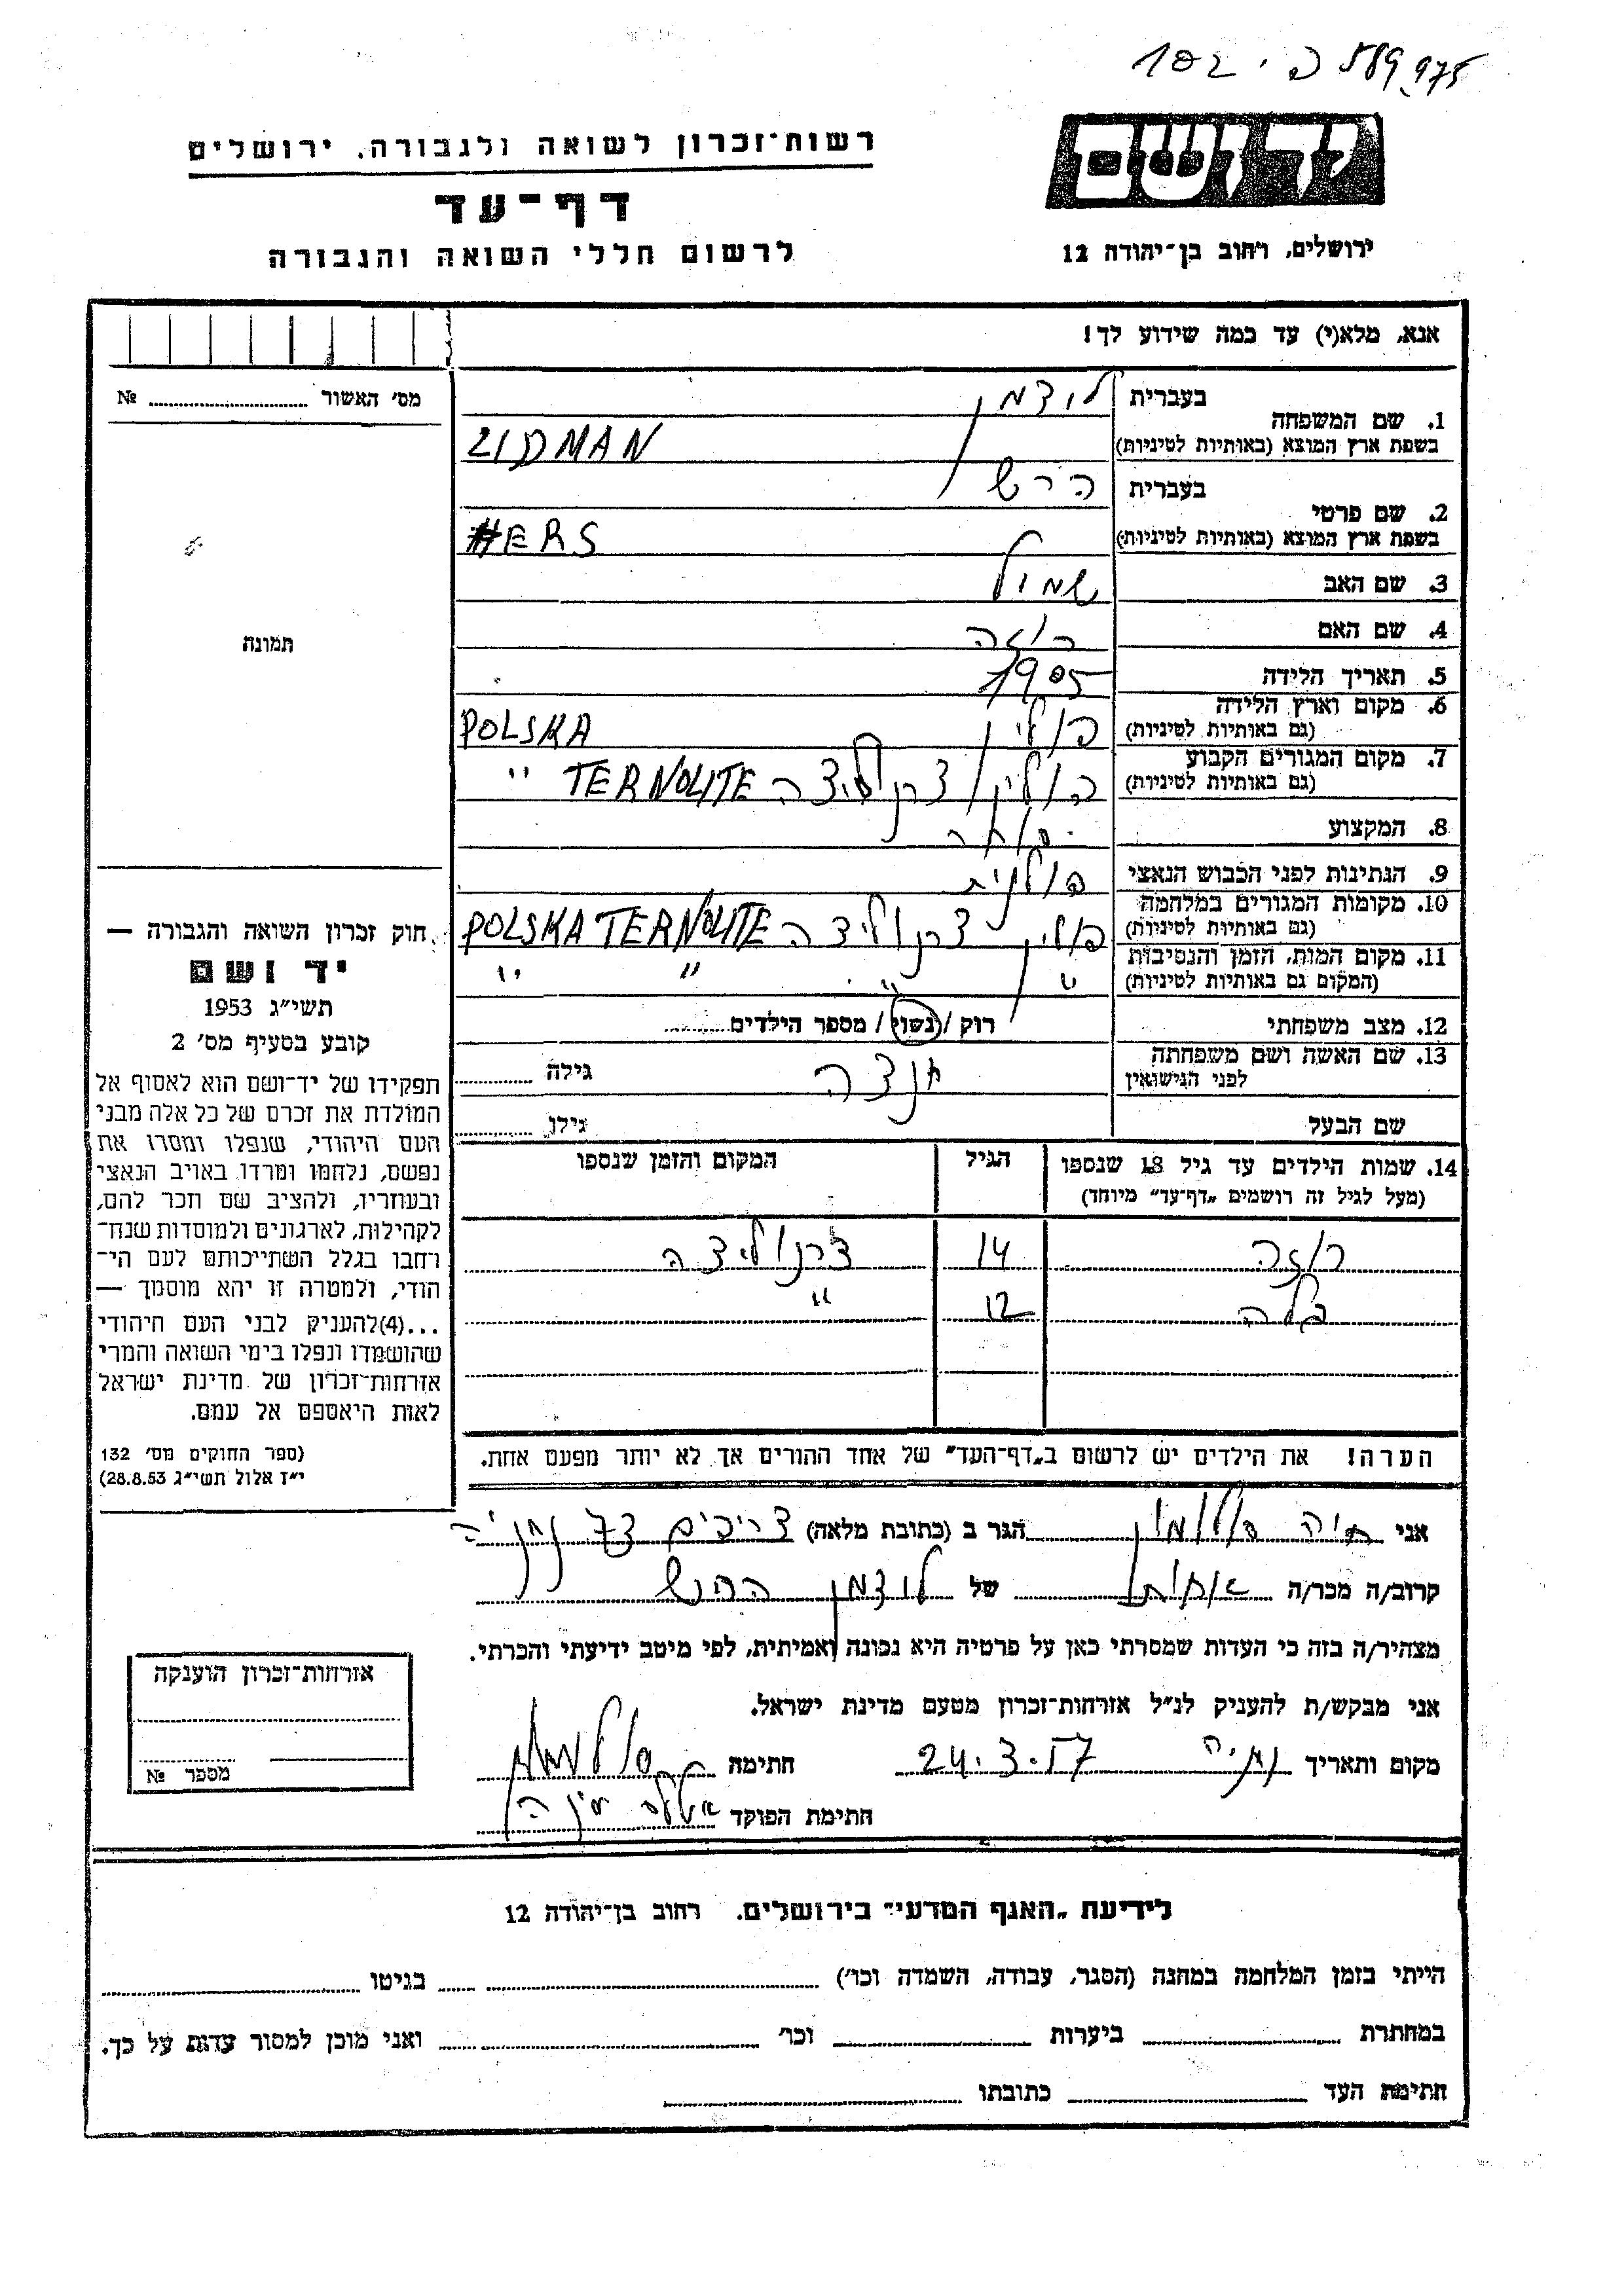 975 589 פ. 102
יד ושם
ירושלים, רחוב בן־יהודה 12
רשות־זכרון לשואה ולגבורה, ירושלים
דף־עד
לרשום חללי השואה והגבורה
אנא, מלא(י) עד כמה שידוע לך!
1. שם המשפחה
בעברית לודמן
בשפת ארץ המוצא (באותיות לטיניות) LIDMAN
2. שם פרטי
בעברית הרש
בשפת ארץ המוצא (באותיות לטיניות) HERS
3. שם האב שמול
4. שם האם רוזה
5. תאריך הלידה 1905
6. מקום וארץ הלידה פולין POLSKA
(גם באותיות לטיניות)
7. מקום המגורים הקבוע פולין צרנוליצה TERNOLITE "
(גם באותיות לטיניות)
8. המקצוע סוחר
9. הנתינות לפני הכבוש הנאצי פולנית
10. מקומות המגורים במלחמה פולין צרנוליצה POLSKA TERNOLITE
(גם באותיות לטיניות)
11. מקום המות, הזמן והנסיבות " " " "
(המקום גם באותיות לטיניות)
12. מצב משפחתי רוק / נשוי / מספר הילדים
13. שם האשה ושם משפחתה לפני הנישואין חנצה גילה
שם הבעל גילו
14. שמות הילדים עד גיל 18 שנספו הגיל המקום והזמן שנספו
(מעל לגיל זה רושמים „דף־עד" מיוחד)
רוזה 14 צרנוליצה
בלה 12 "
הערה! את הילדים יש לרשום ב„דף־העד" של אחד ההורים אך לא יותר מפעם אחת.
אני חיה הגר ב (כתובת מלאה) צריפים 73 נתניה
קרוב/ה מכר/ה אחות של לודמן הרש
מצהיר/ה בזה כי העדות שמסרתי כאן על פרטיה היא נכונה ואמיתית, לפי מיטב ידיעתי והכרתי.
אני מבקש/ת להעניק לנ"ל אזרחות־זכרון מטעם מדינת ישראל.
מקום ותאריך נתניה 24.3.57 חתימה
חתימת הפוקד
מס' האשור №
תמונה
חוק זכרון השואה והגבורה —
יד ושם
תשי"ג 1953
קובע בסעיף מס' 2
תפקידו של יד־ושם הוא לאסוף אל
המולדת את זכרם של כל אלה מבני
העם היהודי, שנפלו ומסרו את
נפשם, נלחמו ומרדו באויב הנאצי
ובעוזריו, ולהציב שם וזכר להם,
לקהילות, לארגונים ולמוסדות שנח־
רחבו בגלל השתייכותם לעם הי־
הודי, ולמטרה זו יהא מוסמך —
...(4)להעניק לבני העם היהודי
שהושמדו ונפלו בימי השואה והמרי
אזרחות־זכרון של מדינת ישראל
לאות היאספם אל עמם.
(ספר החוקים מס' 132
י"ז אלול תשי"ג 28.8.53)
אזרחות־זכרון הוענקה
מספר №
לידיעת „האגף המדעי" בירושלים, רחוב בן־יהודה 12
הייתי בזמן המלחמה במחנה (הסגר, עבודה, השמדה וכו') בגיטו
במחתרת ביערות וכו' ואני מוכן למסור עדות על כך.
חתימת העד כתובתו